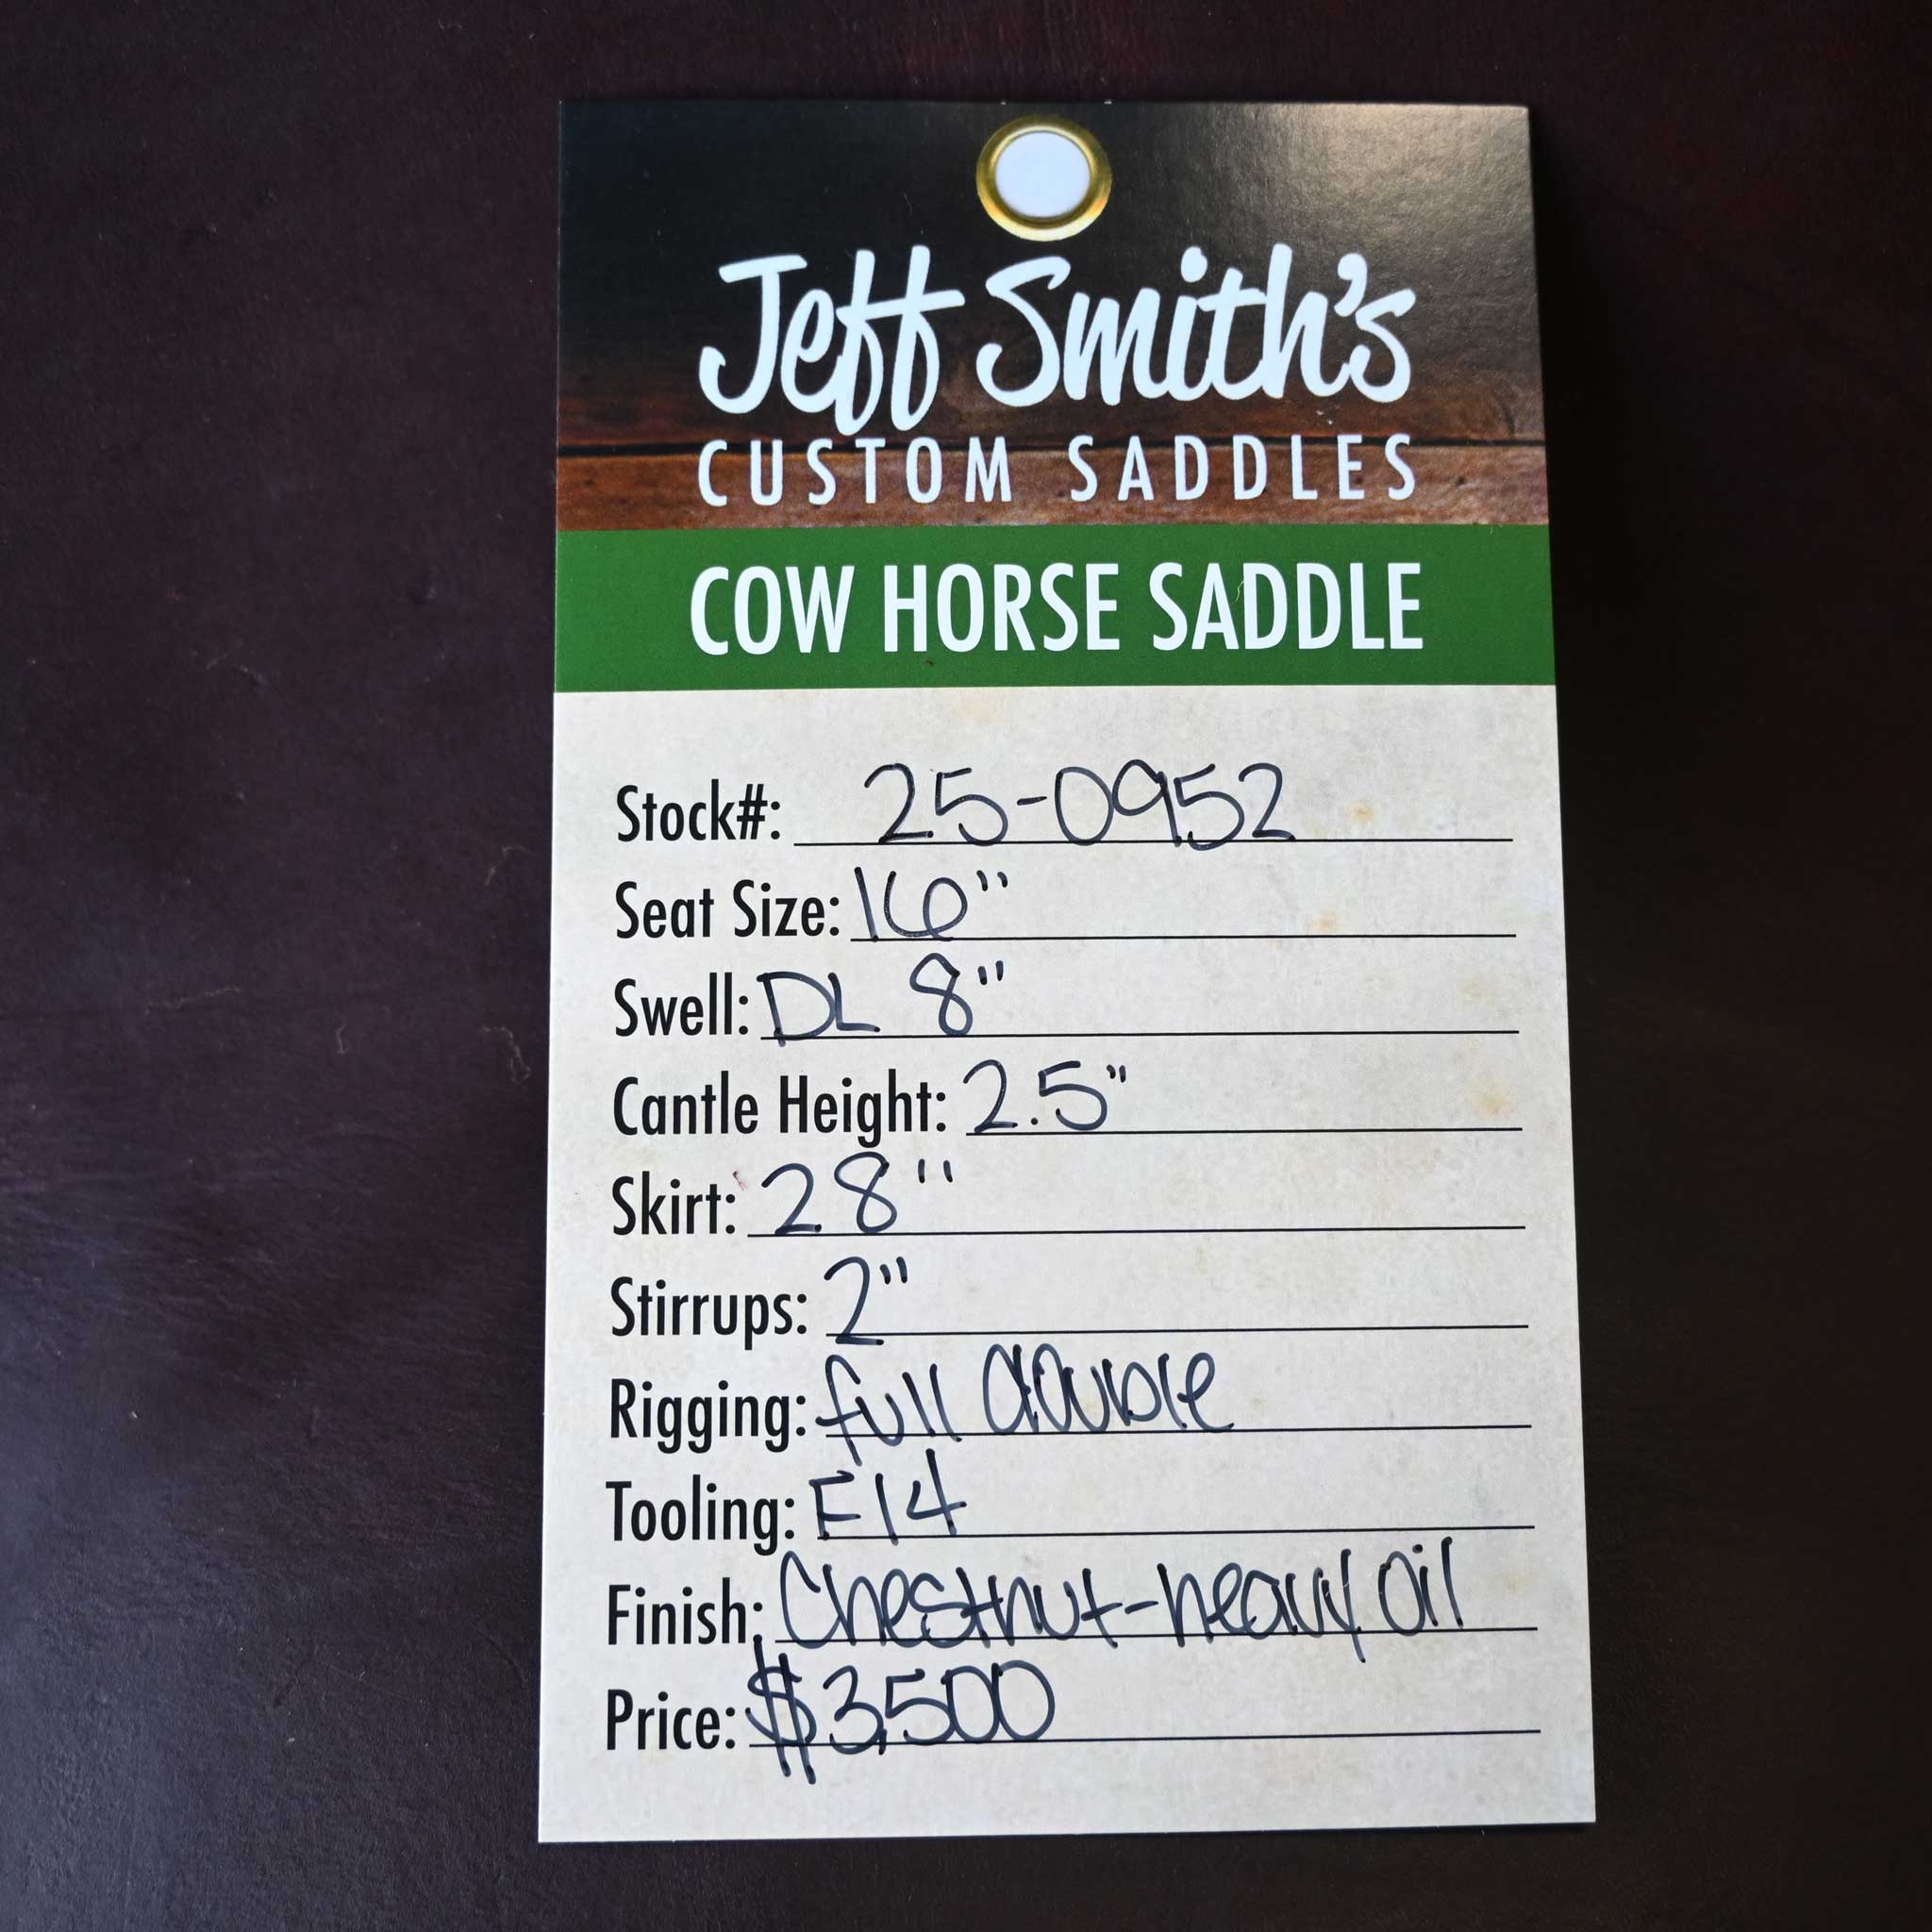 Jeff Smith's
CUSTOM SADDLES
COW HORSE SADDLE
Stock#: 25-0952
Seat Size: 16"
Swell: DL 8"
Cantle Height: 2.5"
Skirt: 28"
Stirrups: 2"
Rigging: full double
Tooling: F14
Finish: Chestnut-heavy oil
Price: $3,500